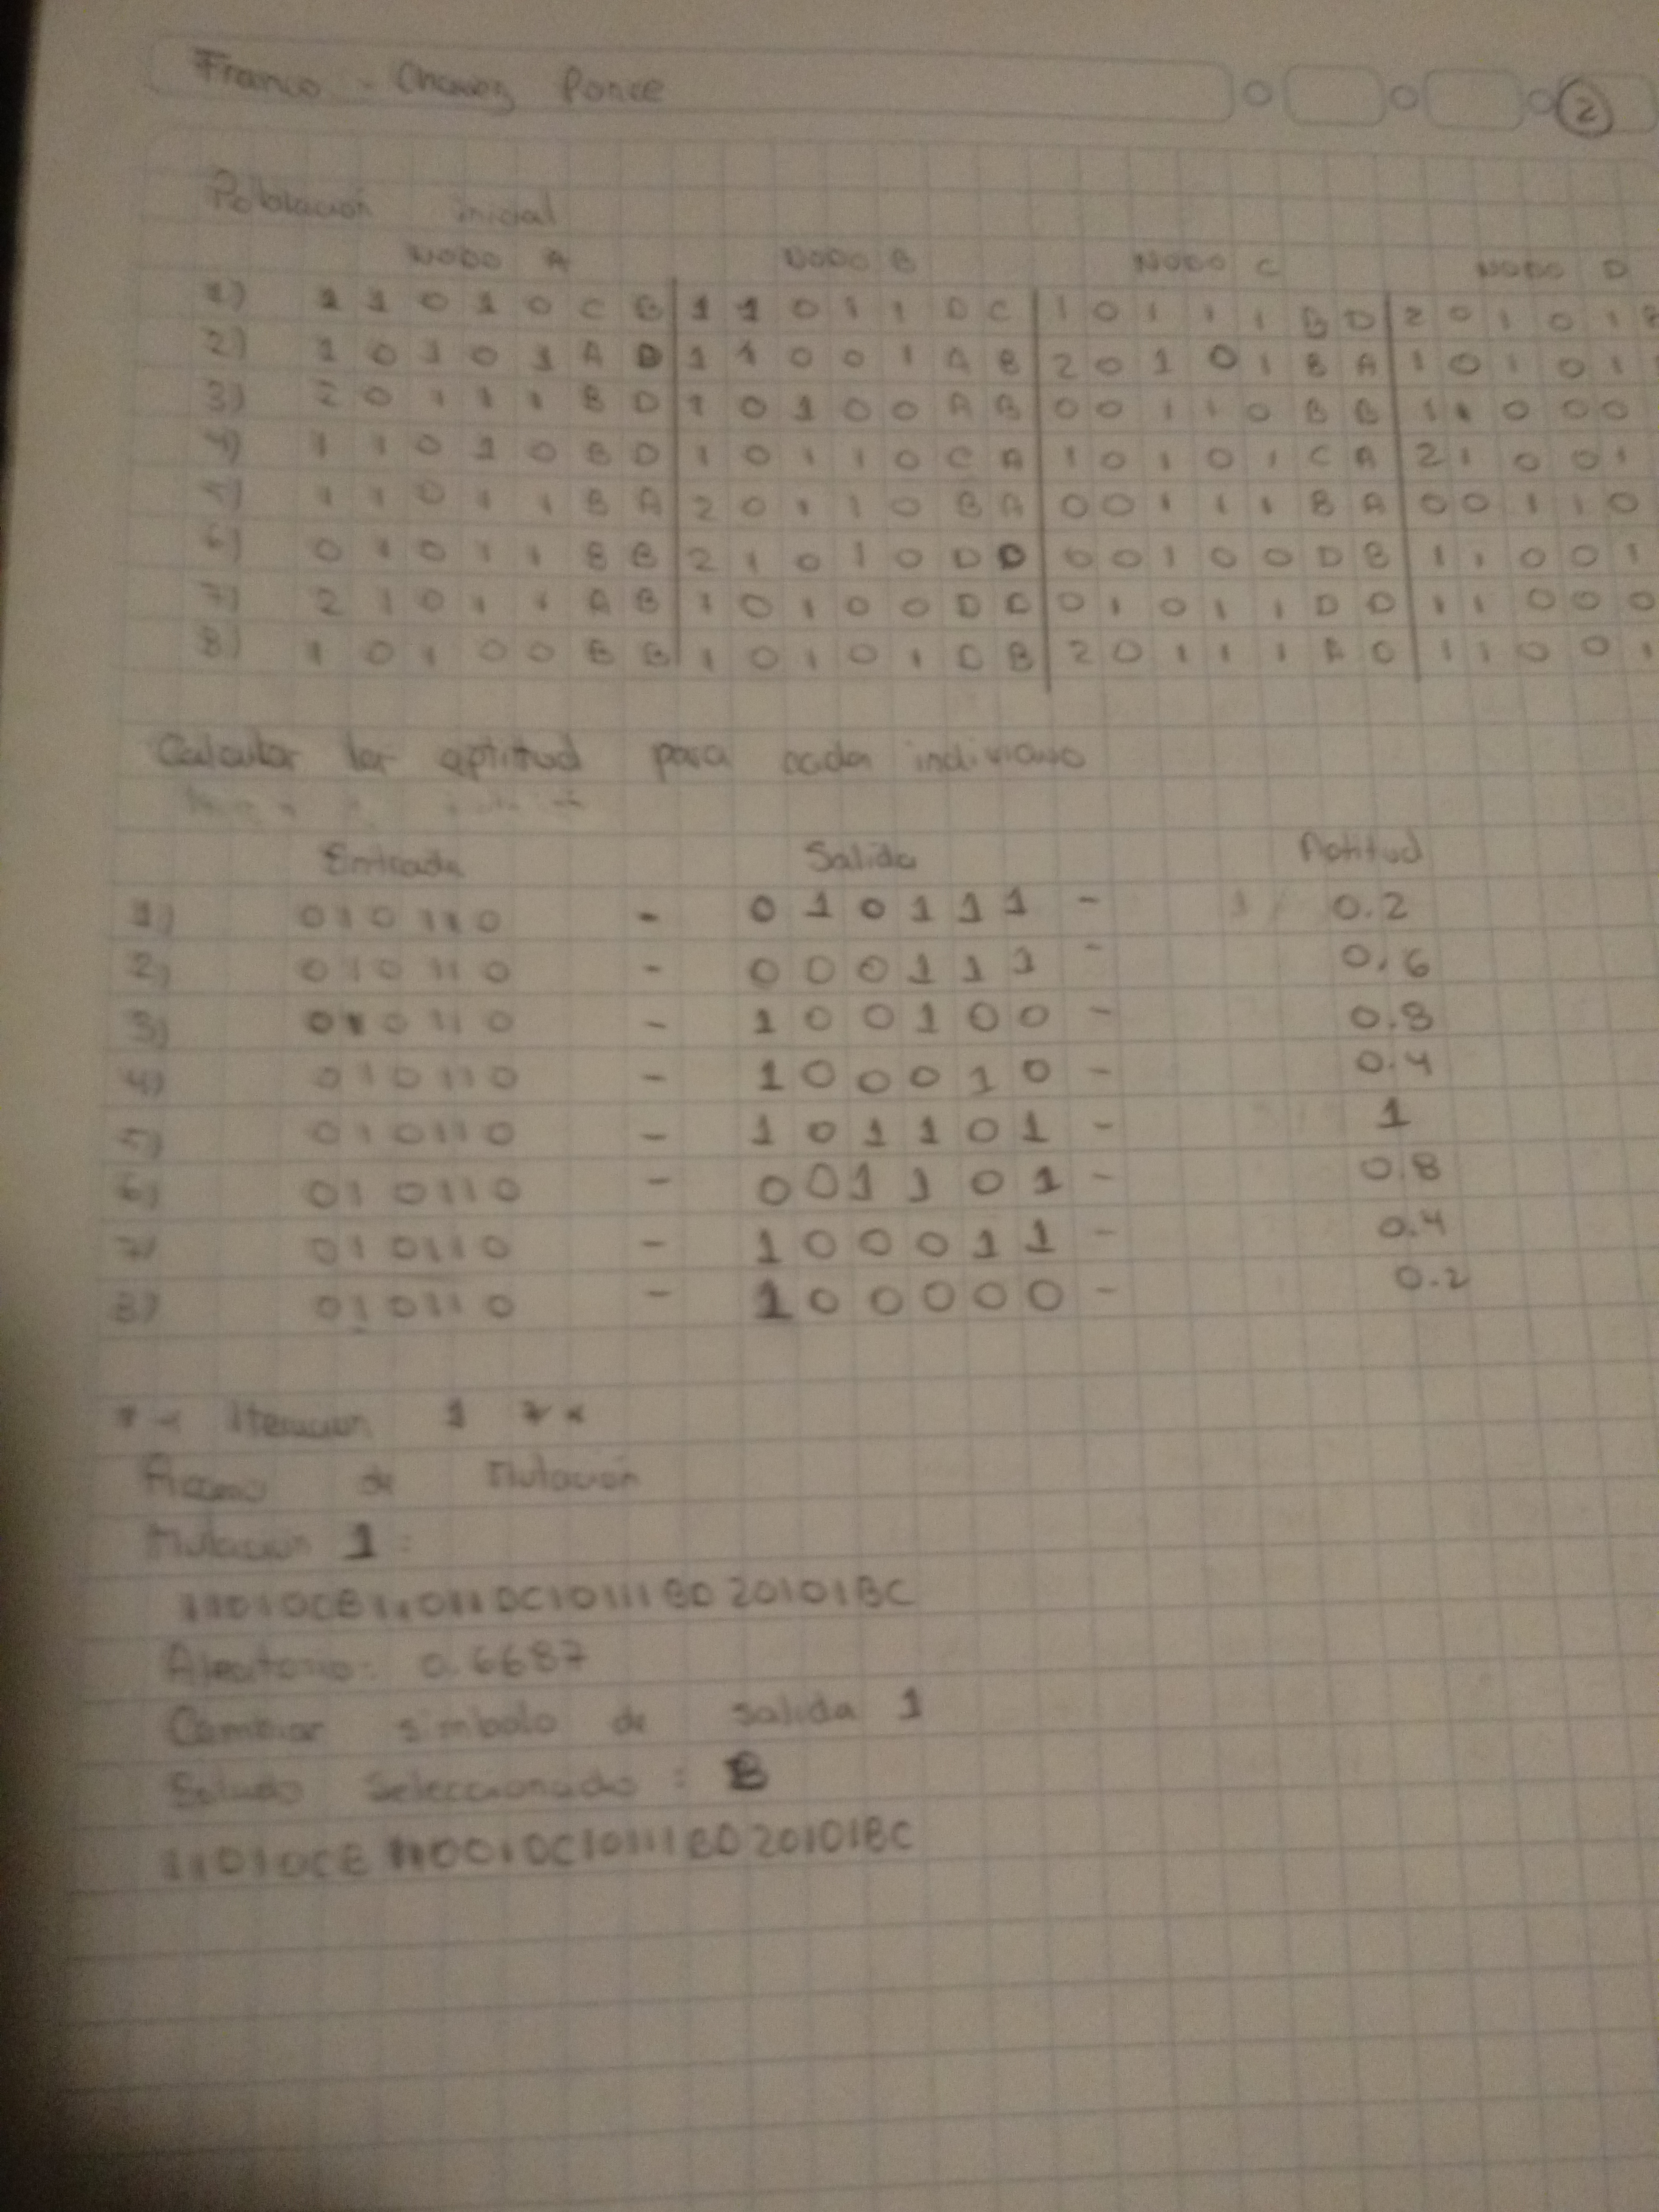 Franco - Chavez Ponce 2
Población inicial
NODO A NODO B NODO C NODO D
1) 1 1 0 1 0 C B 1 1 0 1 1 D C 1 0 1 1 1 B D 2 0 1 0 1 B
2) 1 0 1 0 1 A D 1 1 0 0 1 A B 2 0 1 0 1 B A 1 0 1 0 1
3) 2 0 1 1 1 B D 1 0 1 0 0 A B 0 0 1 1 0 B B 1 1 0 0 0
4) 1 1 0 1 0 B D 1 0 1 1 0 C A 1 0 1 0 1 C A 2 1 0 0 1
5) 1 1 0 1 1 B A 2 0 1 1 0 B A 0 0 1 1 1 B A 0 0 1 1 0
6) 0 1 0 1 1 B B 2 1 0 1 0 D D 0 0 1 0 0 D B 1 1 0 0 1
7) 2 1 0 1 1 A B 1 0 1 0 0 D D 0 1 0 1 1 D D 1 1 0 0 0
8) 1 0 1 0 0 B B 1 0 1 0 1 D B 2 0 1 1 1 A D 1 1 0 0 1
Calcular la aptitud para cada individuo
Entrada Salida Aptitud
1) 010110 - 0 1 0 1 1 1 - 0.2
2) 010110 - 0 0 0 1 1 1 - 0.6
3) 010110 - 1 0 0 1 0 0 - 0.8
4) 010110 - 1 0 0 0 1 0 - 0.4
5) 010110 - 1 0 1 1 0 1 - 1
6) 010110 - 0 0 1 1 0 1 - 0.8
7) 010110 - 1 0 0 0 1 1 - 0.4
8) 010110 - 1 0 0 0 0 0 - 0.2
Iteracion 1
de Mutación
Mutacion 1:
11010CB11011DC10111BD20101BC
Aleatorio: 0.6687
Cambiar simbolo de salida 1
Estado Seleccionado: B
11010CB110010C10111BD20101BC